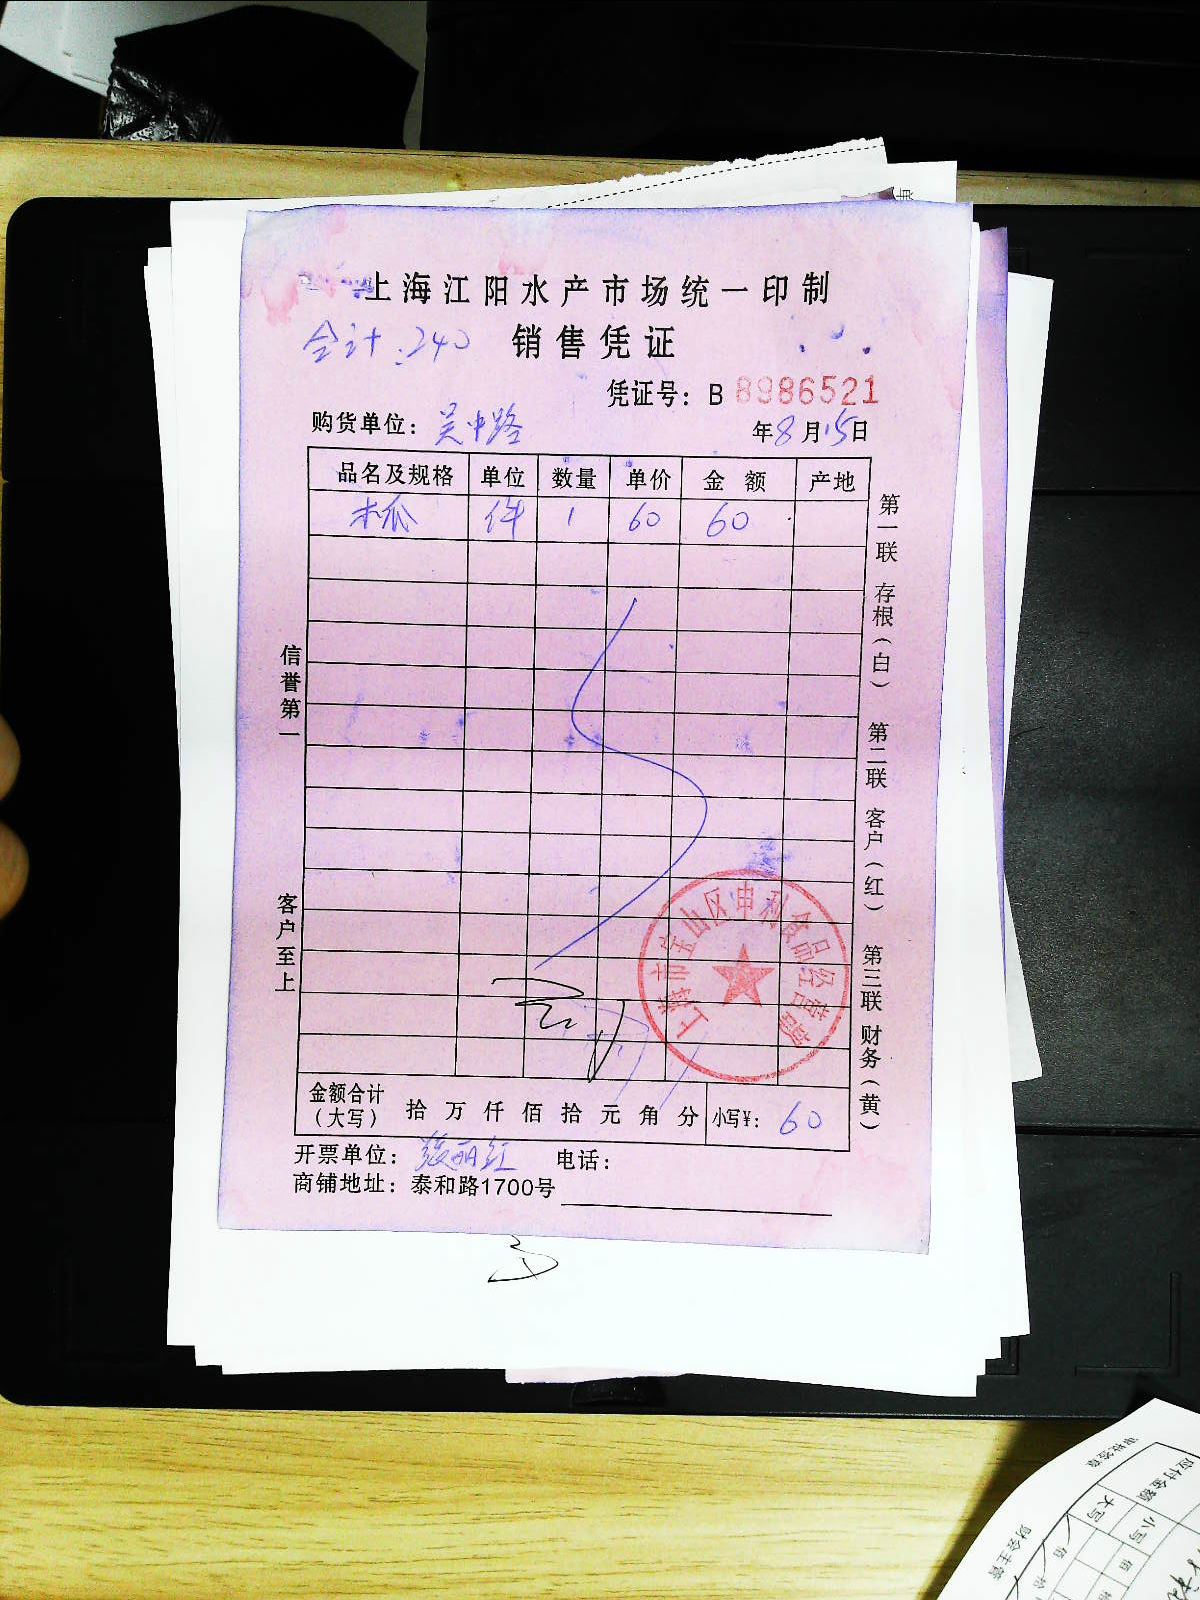 上海江阳水产市场统一印制
合计:240 销售凭证
凭证号: B 8986521
购货单位: 吴中路 年8月15日
品名及规格 单位 数量 单价 金额 产地
木瓜 件 1 60 60
信誉第一
客户至上
第一联 存根(白) 第二联 客户(红) 第三联 财务(黄)
上海市宝山区申利食品经营部
金额合计(大写) 拾 万 仟 佰 拾 元 角 分 小写¥: 60
开票单位: 张丽红 电话:
商铺地址: 泰和路1700号
审校签章
应付金额
大写
小写
佰
拾
佰
财会主管